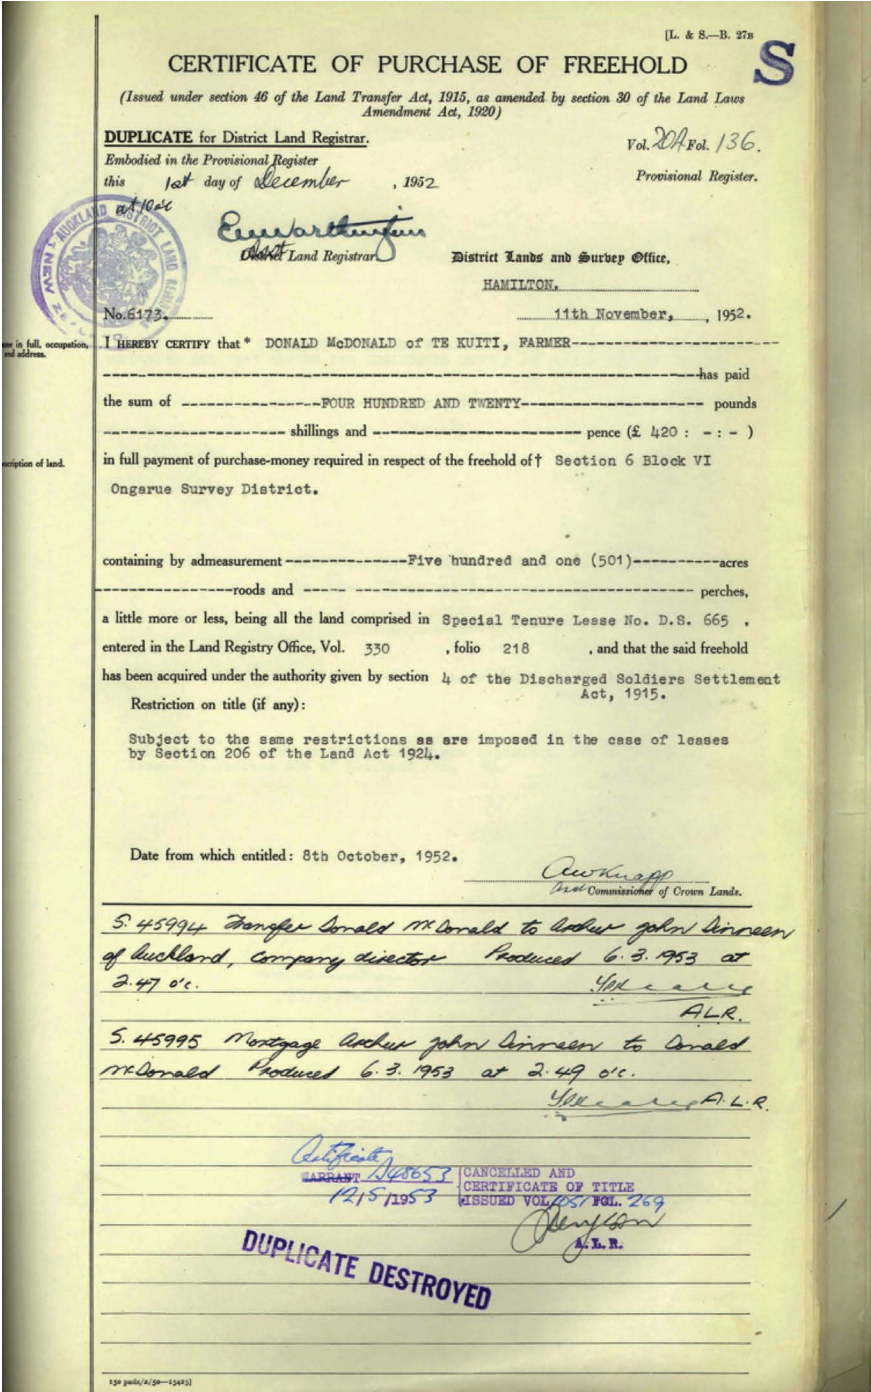 [L. & S.—B. 27B
S
CERTIFICATE OF PURCHASE OF FREEHOLD
(Issued under section 46 of the Land Transfer Act, 1915, as amended by section 30 of the Land Laws
Amendment Act, 1920)
DUPLICATE for District Land Registrar.
Vol. 20A Fol. 136.
Embodied in the Provisional Register
this 1st day of December, 1952
Provisional Register.
at 10 o'c
AUCKLAND DISTRICT LAND
NEW
Land Registrar
District Lands and Survey Office,
HAMILTON.
No. 6173.
11th November, , 1952.
in full, occupation,
and address.
I HEREBY CERTIFY that * DONALD McDONALD of TE KUITI, FARMER
has paid
the sum of FOUR HUNDRED AND TWENTY pounds
shillings and pence (£ 420 : - : - )
in full payment of purchase-money required in respect of the freehold of † Section 6 Block VI
of land.
Ongarue Survey District.
containing by admeasurement Five hundred and one (501) acres
roods and perches,
a little more or less, being all the land comprised in Special Tenure Lease No. D.S. 665 ,
entered in the Land Registry Office, Vol. 330 , folio 218 , and that the said freehold
has been acquired under the authority given by section 4 of the Discharged Soldiers Settlement
Act, 1915.
Restriction on title (if any):
Subject to the same restrictions as are imposed in the case of leases
by Section 206 of the Land Act 1924.
Date from which entitled: 8th October, 1952.
AW Knapp
Commissioner of Crown Lands.
S. 45994 Transfer Donald McDonald to Arthur John Dinneen
of Auckland, Company director Produced 6.3.1953 at
2.47 o'c.
A.L.R.
S. 45995 Mortgage Arthur John Dinneen to Donald
McDonald Produced 6.3.1953 at 2.49 o'c.
A.L.R.
Certificate
WARRANT A48653
12/5/1953
CANCELLED AND
CERTIFICATE OF TITLE
ISSUED VOL 1051 FOL. 269
A.L.R.
DUPLICATE DESTROYED
150 pads/2/50—15425]